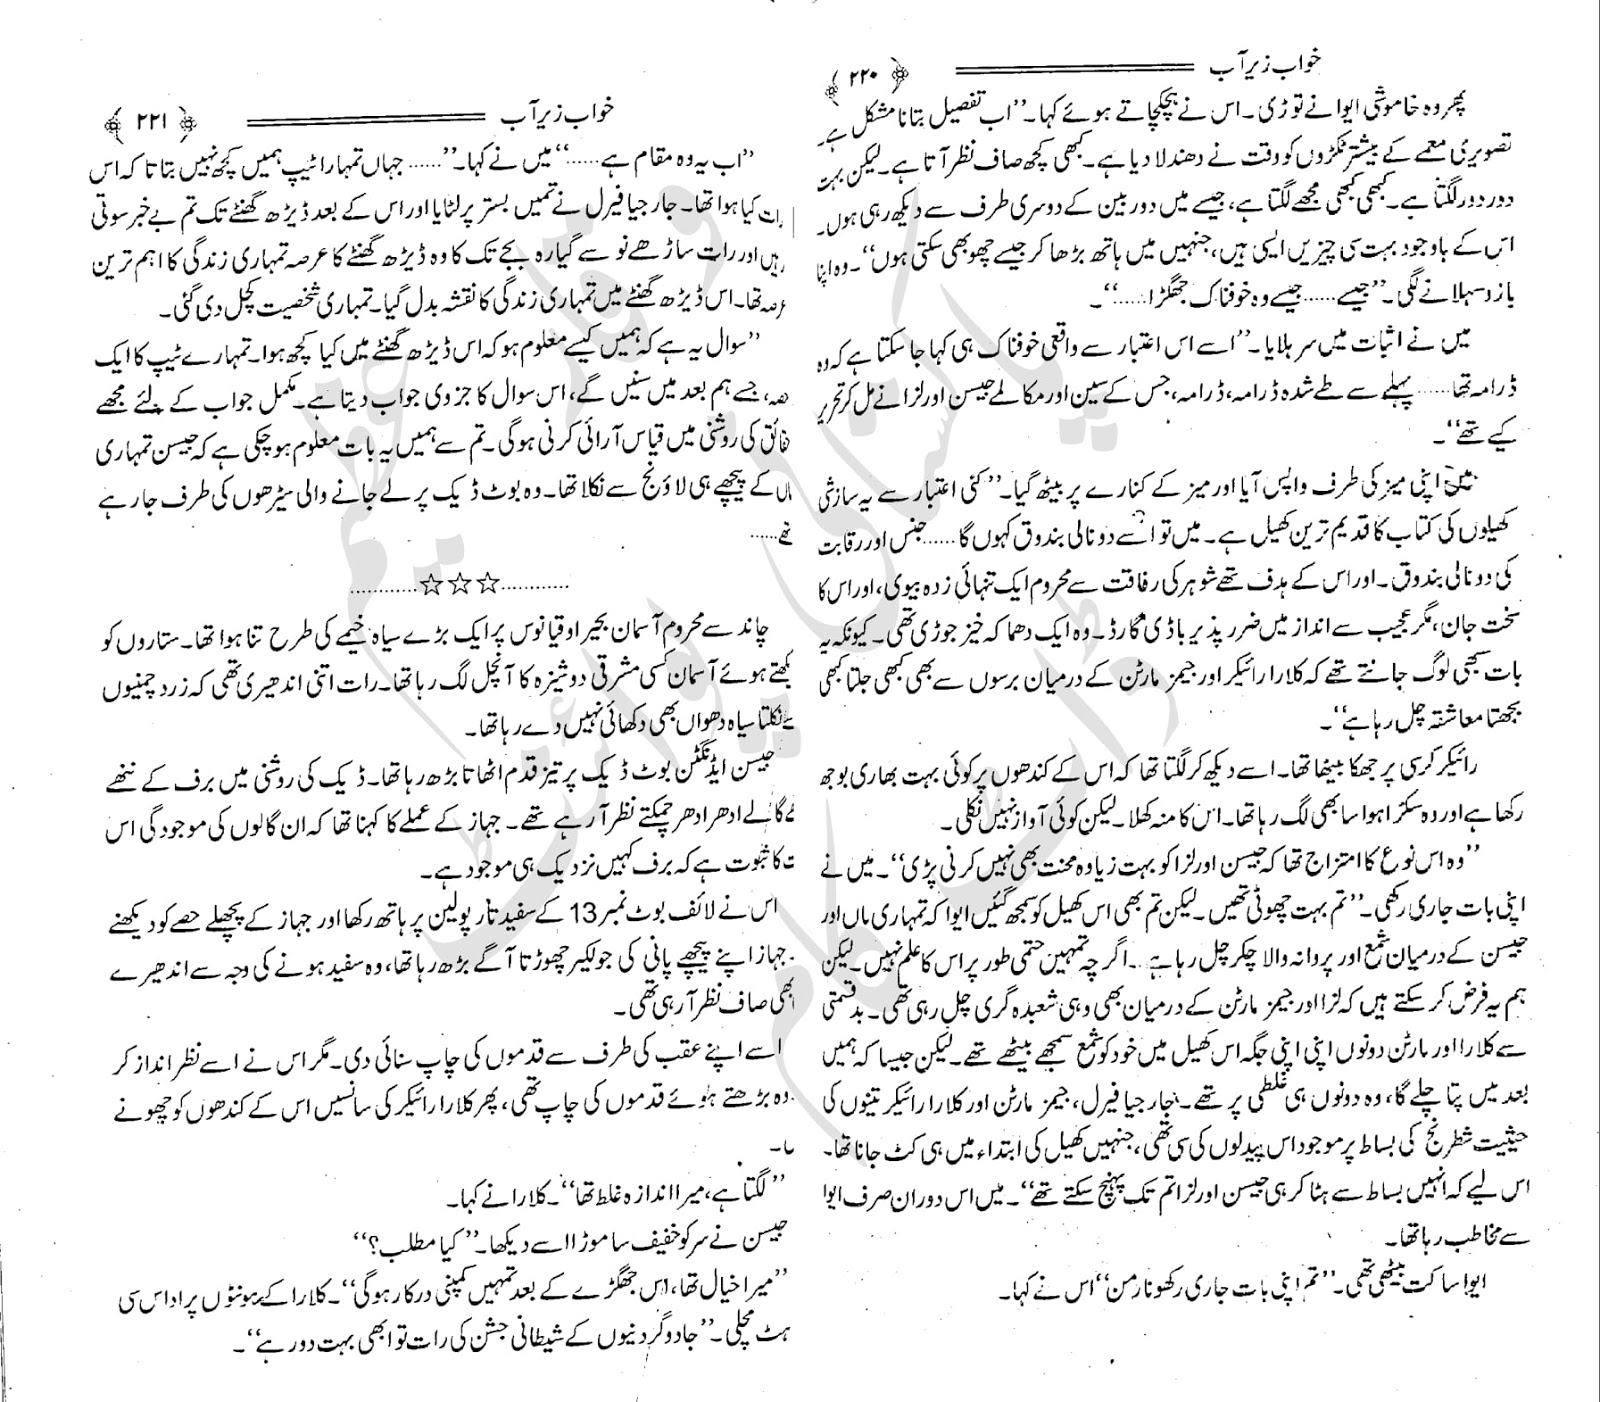 خواب زیر آب ﴿۲۲۰﴾
پھر وہ خاموشی ایوا نے توڑی۔ اس نے ہچکچاتے ہوئے کہا۔ ’’اب تفصیل بتانا مشکل ہے۔
تصویری معمے کے بیشتر ٹکڑوں کو وقت نے دھندلا دیا ہے۔ کبھی کچھ صاف نظر آتا ہے۔ لیکن بہت
دور دور لگتا ہے۔ کبھی کبھی مجھے لگتا ہے، جیسے میں دوربین کے دوسری طرف سے دیکھ رہی ہوں۔
اس کے باوجود بہت سی چیزیں ایسی ہیں، جنہیں میں ہاتھ بڑھا کر جیسے چھو بھی سکتی ہوں‘‘۔ وہ اپنا
بازو سہلانے لگی۔ ’’جیسے...... جیسے وہ خوفناک جھگڑا......‘‘۔
میں نے اثبات میں سر ہلایا۔ ’’اسے اس اعتبار سے واقعی خوفناک ہی کہا جا سکتا ہے کہ وہ
ڈرامہ تھا...... پہلے سے طے شدہ ڈرامہ، ڈرامہ، جس کے سین اور مکالمے جیسن اور لزا نے مل کر تحریر
کیے تھے‘‘۔
میں اپنی میز کی طرف واپس آیا اور میز کے کنارے پر بیٹھ گیا۔ ’’کئی اعتبار سے یہ سازشی
کھیلوں کی کتاب کا قدیم ترین کھیل ہے۔ میں تو اسے دونالی بندوق کہوں گا...... جنس اور رقابت
کی دونالی بندوق۔ اور اس کے ہدف تھے شوہر کی رفاقت سے محروم ایک تنہائی زدہ بیوی، اور اس کا
سخت جان، مگر عجیب سے انداز میں ضرر پذیر باڈی گارڈ۔ وہ ایک دھماکہ خیز جوڑی تھی۔ کیونکہ یہ
بات سبھی لوگ جانتے تھے کہ کلارا رائیکر اور جیمز مارٹن کے درمیان برسوں سے بھی کبھی جلتا کبھی
بجھتا معاشقہ چل رہا ہے‘‘۔
رائیکر کرسی پر جھکا بیٹھا تھا۔ اسے دیکھ کر لگتا تھا کہ اس کے کندھوں پر کوئی بہت بھاری بوجھ
رکھا ہے اور وہ سکڑا ہوا سا بھی لگ رہا تھا۔ اس کا منہ کھلا۔ لیکن کوئی آواز نہیں نکلی۔
’’وہ اس نوع کا امتزاج تھا کہ جیسن اور لزا کو بہت زیادہ محنت بھی نہیں کرنی پڑی‘‘۔ میں نے
اپنی بات جاری رکھی۔ ’’تم بہت چھوٹی تھیں۔ لیکن تم بھی اس کھیل کو سمجھ گئیں ایوا کہ تمہاری ماں اور
جیسن کے درمیان شمع اور پروانہ والا چکر چل رہا ہے۔ اگرچہ تمہیں حتمی طور پر اس کا علم نہیں۔ لیکن
ہم یہ فرض کر سکتے ہیں کہ لزا اور جیمز مارٹن کے درمیان بھی وہی شعبدہ گری چل رہی تھی۔ بدقسمتی
سے کلارا اور مارٹن دونوں اپنی اپنی جگہ اس کھیل میں خود کو شمع سمجھے بیٹھے تھے۔ لیکن جیسا کہ ہمیں
بعد میں پتا چلے گا، وہ دونوں ہی غلطی پر تھے۔ جارجیا فیرل، جیمز مارٹن اور کلارا رائیکر تینوں کی
حیثیت شطرنج کی بساط پر موجود اس پیدلوں کی سی تھی، جنہیں کھیل کی ابتداء میں ہی کٹ جانا تھا۔
اس لیے کہ انہیں بساط سے ہٹا کر ہی جیسن اور لزا تم تک پہنچ سکتے تھے‘‘۔ میں اس دوران صرف ایوا
سے مخاطب رہا تھا۔
ایوا ساکت بیٹھی تھی۔ ’’تم اپنی بات جاری رکھو نارمن‘‘ اس نے کہا۔
خواب زیر آب ﴿۲۲۱﴾
’’اب یہ وہ مقام ہے......‘‘ میں نے کہا۔ ’’...... جہاں تمہارا ٹیپ ہمیں کچھ نہیں بتاتا کہ اس
رات کیا ہوا تھا۔ جارجیا فیرل نے تمہیں بستر پر لٹایا اور اس کے بعد ڈیڑھ گھنٹے تک تم بے خبر سوتی
رہیں اور رات ساڑھے نو سے گیارہ بجے تک کا وہ ڈیڑھ گھنٹے کا عرصہ تمہاری زندگی کا اہم ترین
عرصہ تھا۔ اس ڈیڑھ گھنٹے میں تمہاری زندگی کا نقشہ بدل گیا۔ تمہاری شخصیت کچل دی گئی۔
’’سوال یہ ہے کہ ہمیں کیسے معلوم ہو کہ اس ڈیڑھ گھنٹے میں کیا کچھ ہوا۔ تمہارے ٹیپ کا ایک
حصہ، جسے ہم بعد میں سنیں گے، اس سوال کا جزوی جواب دیتا ہے۔ مکمل جواب کے لئے مجھے
حقائق کی روشنی میں قیاس آرائی کرنی ہوگی۔ تم سے ہمیں یہ بات معلوم ہو چکی ہے کہ جیسن تمہاری
ماں کے پیچھے ہی لاؤنج سے نکلا تھا۔ وہ بوٹ ڈیک پر لے جانے والی سیڑھوں کی طرف جا رہے
تھے......
............☆☆☆............
چاند سے محروم آسمان بحیر اوقیانوس پر ایک بڑے سیاہ خیمے کی طرح تنا ہوا تھا۔ ستاروں کو
دیکھتے ہوئے آسمان کسی مشرقی دوشیزہ کا آنچل لگ رہا تھا۔ رات اتنی اندھیری تھی کہ زرد چمنیوں
سے نکلتا سیاہ دھواں بھی دکھائی نہیں دے رہا تھا۔
جیسن ایڈنگٹن بوٹ ڈیک پر تیز قدم اٹھاتا بڑھ رہا تھا۔ ڈیک کی روشنی میں برف کے ننھے
گالے ادھر ادھر چمکتے نظر آ رہے تھے۔ جہاز کے عملے کا کہنا تھا کہ ان گالوں کی موجودگی اس
بات کا ثبوت ہے کہ برف کہیں نزدیک ہی موجود ہے۔
اس نے لائف بوٹ نمبر 13 کے سفید تارپولین پر ہاتھ رکھا اور جہاز کے پچھلے حصے کو دیکھنے
جہاز اپنے پیچھے پانی کی جو لکیر چھوڑتا آگے بڑھ رہا تھا، وہ سفید ہونے کی وجہ سے اندھیرے
بھی صاف نظر آ رہی تھی۔
اسے اپنے عقب کی طرف سے قدموں کی چاپ سنائی دی۔ مگر اس نے اسے نظر انداز کر
وہ بڑھتے ہوئے قدموں کی چاپ تھی، پھر کلارا رائیکر کی سانسیں اس کے کندھوں کو چھونے
’’لگتا ہے، میرا اندازہ غلط تھا‘‘۔ کلارا نے کہا۔
جیسن نے سر کو خفیف سا موڑا اسے دیکھا۔ ’’کیا مطلب؟‘‘
’’میرا خیال تھا، اس جھگڑے کے بعد تمہیں کمپنی درکار ہوگی‘‘۔ کلارا کے ہونٹوں پر اداس سی
ہٹ مچلی۔ ’’جادوگردنیوں کے شیطانی جشن کی رات تو ابھی بہت دور ہے‘‘۔